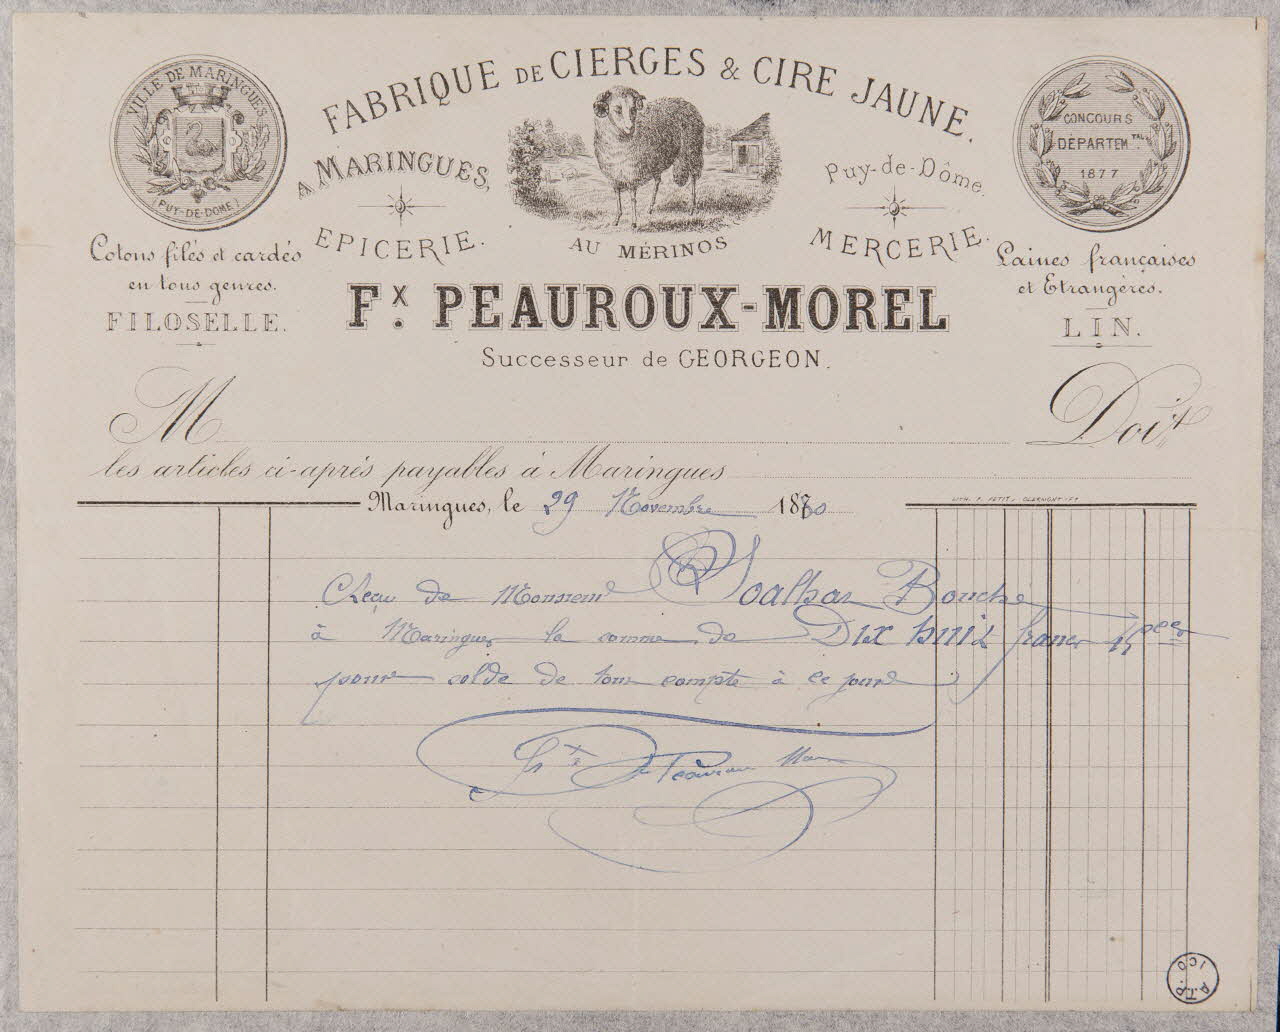 FABRIQUE DE CIERGES & CIRE JAUNE.
VILLE DE MARINGUES
(PUY-DE-DÔME)
CONCOURS
DÉPARTEM.TAL
1877
A MARINGUES,
Puy-de-Dôme.
EPICERIE.
AU MÉRINOS
MERCERIE.
Cotons filés et cardés
en tous genres.
FILOSELLE.
Laines françaises
et Etrangères.
LIN.
Fx. PEAUROUX-MOREL
Successeur de GEORGEON.
M Doit
les articles ci-après payables à Maringues
LITH. F. PETIT, CLERMONT-Fd
Maringues, le 29 Novembre 1880
Reçu de Monsieur Soalhat Bouche
à Maringues la somme de Dix huit francs 15
pour solde de tout compte à ce jour
Fx Peauroux
A.T.P.
ICO